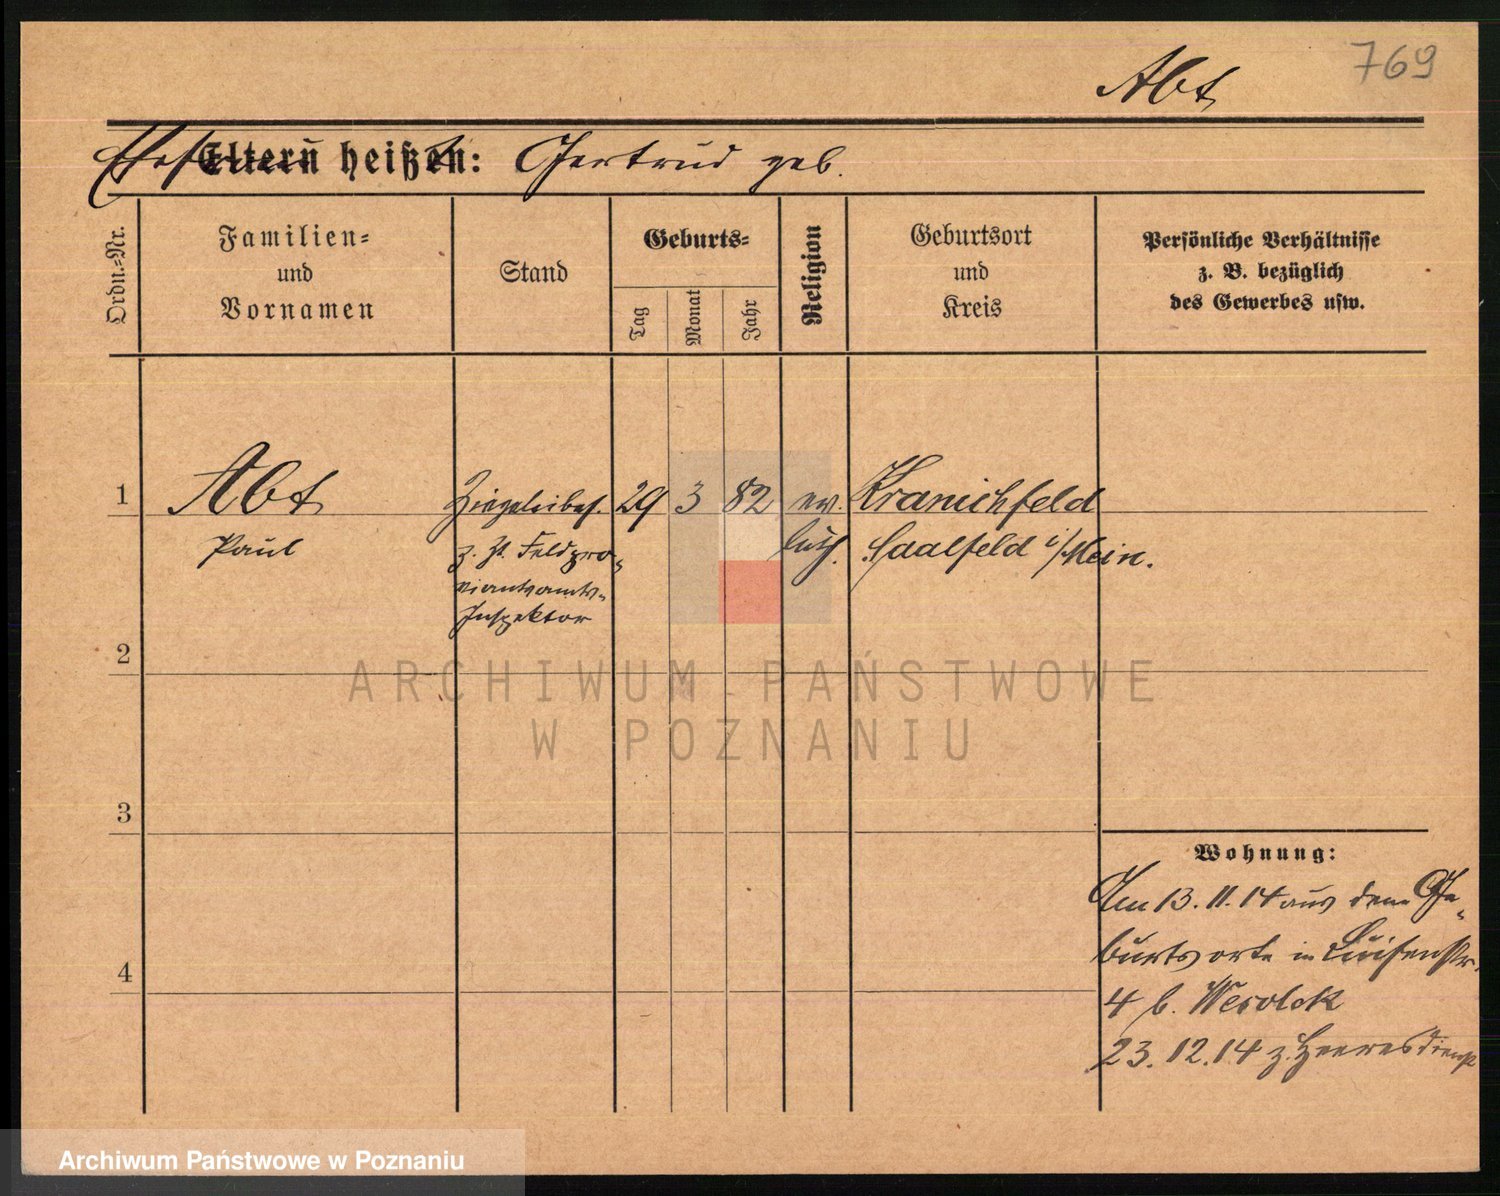 769
Abt
Ehefrau heißt: Gertrud geb.
Ordn.-Nr.
Familien-
und
Vornamen
Stand
Geburts-
Tag
Monat
Jahr
Religion
Geburtsort
und
Kreis
Persönliche Verhältnisse
z. B. bezüglich
des Gewerbes usw.
1 Abt Ziegeleibes. 29 3 82 ev. Kranichfeld
Paul z. Zt. Feldpro- luth. Saalfeld i/Mein.
viantamts-
Inspektor
2
ARCHIWUM PAŃSTWOWE
W POZNANIU
3
Wohnung:
Am 13.11.14 aus dem Ge-
burtsorte in Luisenstr.
4
4 b.
23.12.14 z. Heeresdienst
Archiwum Państwowe w Poznaniu